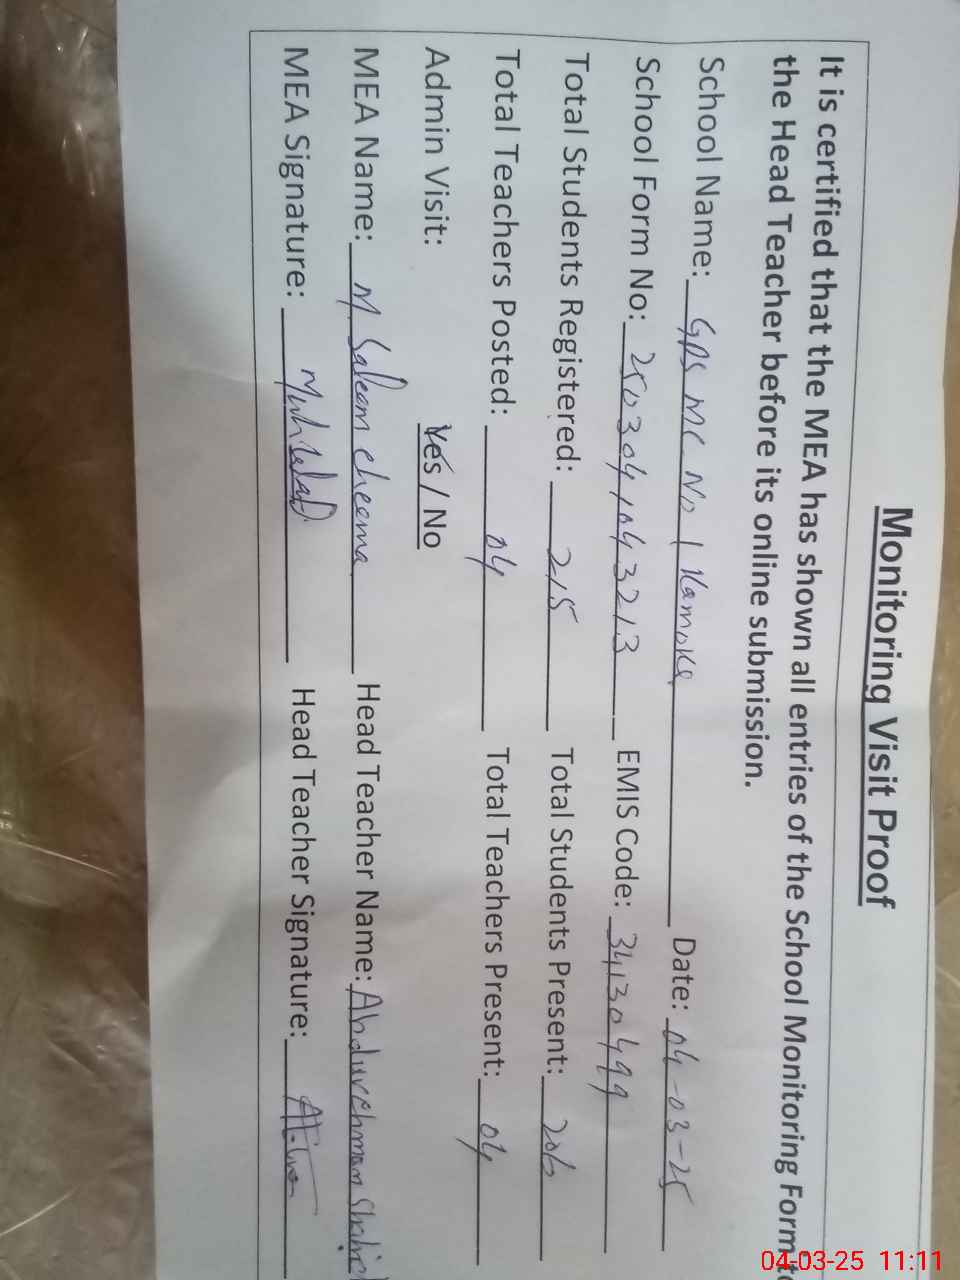 Monitoring Visit Proof
It is certified that the MEA has shown all entries of the School Monitoring Form to
the Head Teacher before its online submission.
School Name: GPS MC No 1 Kamoke Date: 04-03-25
School Form No: 2503041043213 EMIS Code: 34130499
Total Students Registered: 215 Total Students Present: 206
Total Teachers Posted: 04 Total Teachers Present: 04
Admin Visit: Yes / No
MEA Name: M. Saleem Cheema Head Teacher Name: Abdurehman Shahid
MEA Signature: Head Teacher Signature:
04-03-25 11:11